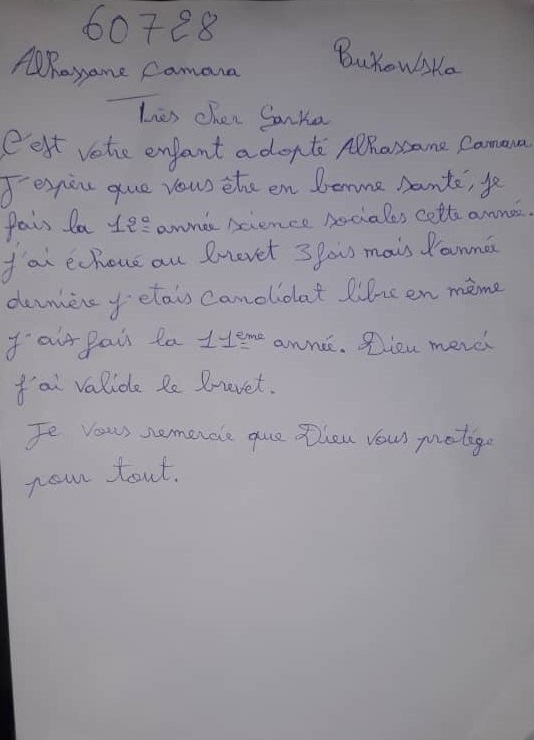 60728
Alhassane Camara Bukowska
Très cher Sarka
C'est votre enfant adopté Alhassane Camara
J'espère que vous être en bonne santé, je
fais la 12e année science sociales cette année.
J'ai échoué au brevet 3 fois mais l'année
dernière j'etais candidat libre en même
j'ais fais la 11ème année. Dieu merci
j'ai valide le brevet.
Je vous remercie que Dieu vous protége
pour tout.